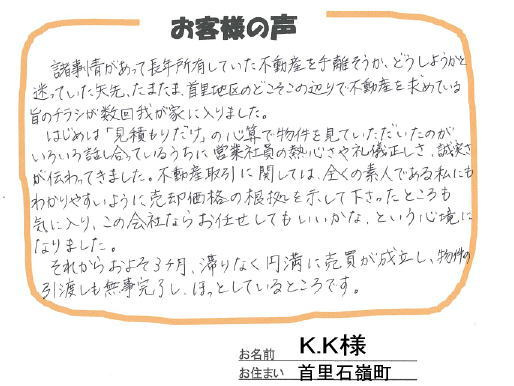 お客様の声
諸事情があって長年所有していた不動産を手離そうか、どうしようかと
迷っていた矢先、たまたま、首里地区のどこそこの辺りで不動産を求めている
旨のチラシが数回我が家に入りました。
はじめは「見積もりだけ」の心算で物件を見ていただいたのが
いろいろ話し合っているうちに営業社員の熱心さや礼儀正しさ、誠実さ
が伝わってきました。不動産取引に関しては、全くの素人である私にも
わかりやすいように売却価格の根拠を示して下さったところも
気に入り、この会社ならお任せしてもいいかな、という心境に
なりました。
それからおよそ3ヶ月、滞りなく円満に売買が成立し、物件の
引渡しも無事完了し、ほっとしているところです。
お名前 K.K様
お住まい 首里石嶺町